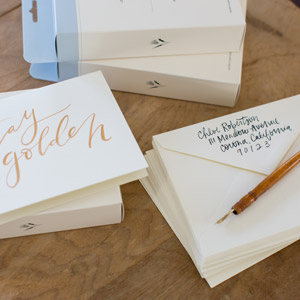 ay
golden
Chloe Robertson
111 Meadow Avenue
Corona, California
90123